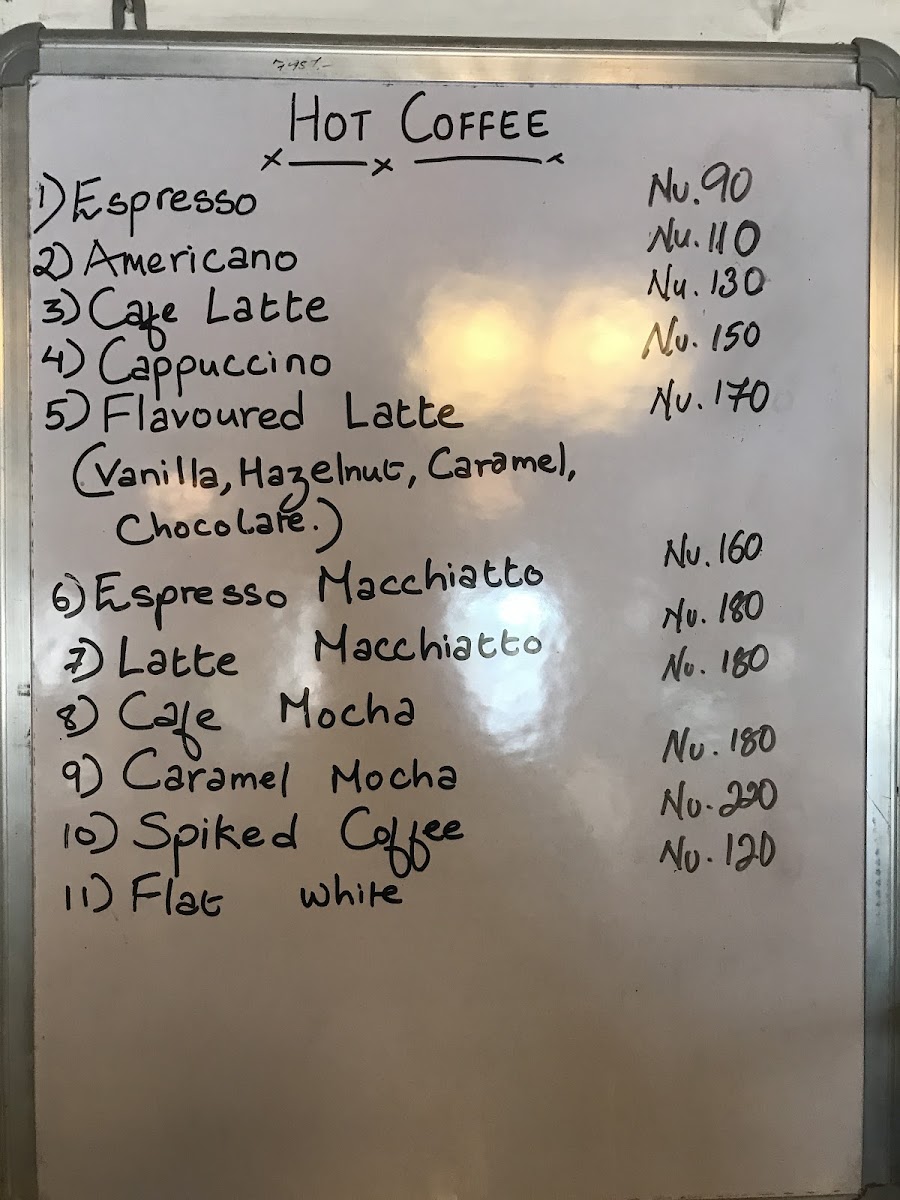 HOT COFFEE
1) Espresso Nu. 90
2) Americano Nu. 110
3) Cafe Latte Nu. 130
4) Cappuccino Nu. 150
5) Flavoured Latte Nu. 170
(Vanilla, Hazelnut, Caramel,
Chocolate.)
6) Espresso Macchiatto Nu. 160
7) Latte Macchiatto Nu. 180
8) Cafe Mocha Nu. 180
9) Caramel Mocha Nu. 180
10) Spiked Coffee Nu. 220
11) Flat white Nu. 120